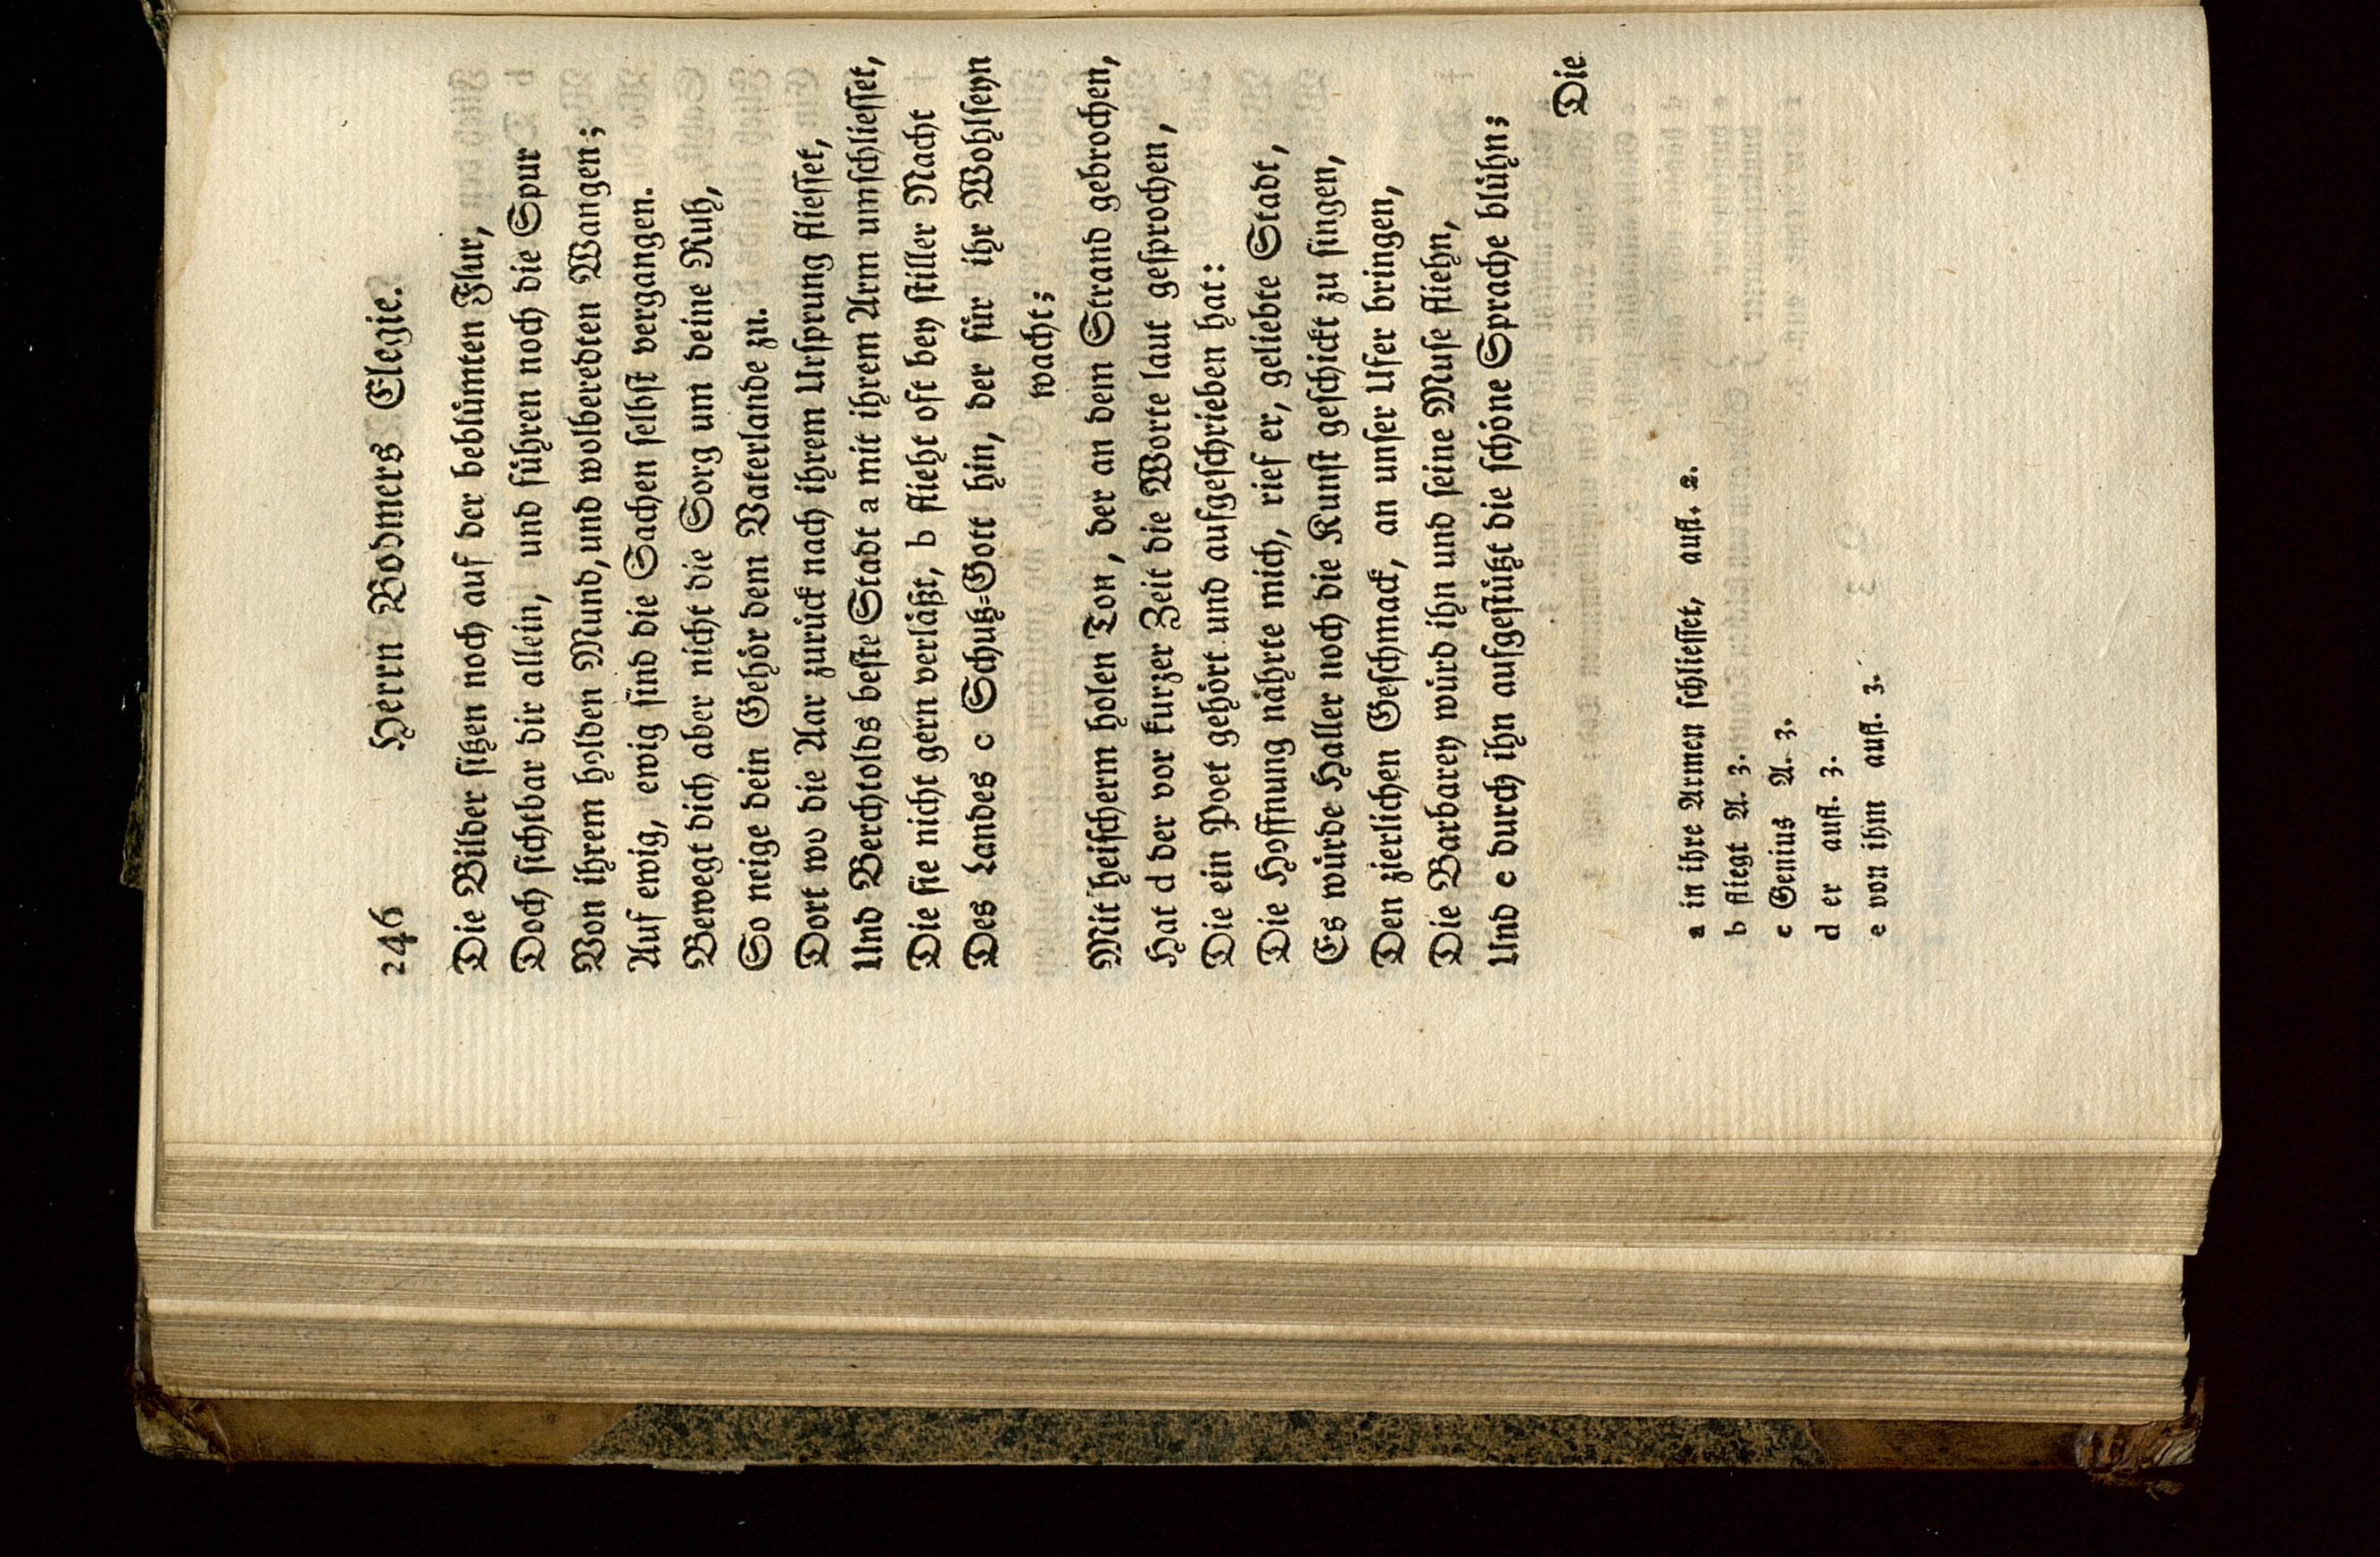 246 Herrn Bodmers Elegie.
Die Bilder sitzen noch auf der beblümten Flur,
Doch sichtbar dir allein, und führen noch die Spur
Von ihrem holden Mund, und wolberedten Wangen;
Auf ewig, ewig sind die Sachen selbst vergangen.
Bewegt dich aber nicht die Sorg um deine Ruh,
So neige dein Gehör dem Vaterlande zu.
Dort wo die Aar zurück nach ihrem Ursprung fliesset,
Und Berchtolds beste Stadt a mit ihrem Arm umschliesset,
Die sie nicht gern verläßt, b flieht oft bey stiller Nacht
Des Landes c Schutz=Gott hin, der für ihr Wohlseyn
wacht;
Mit heischerm holen Ton, der an dem Strand gebrochen,
Hat d der vor kurzer Zeit die Worte laut gesprochen,
Die ein Poet gehört und aufgeschrieben hat:
Die Hoffnung nährte mich, rief er, geliebte Stadt,
Es würde Haller noch die Kunst geschickt zu singen,
Den zierlichen Geschmack, an unser Ufer bringen,
Die Barbarey würd ihn und seine Muse fliehn,
Und e durch ihn aufgestützt die schöne Sprache blühn;
Die
a in ihre Armen schliesset, aufl. 2.
b fliegt A. 3.
c Genius A. 3.
d er aufl. 3.
e von ihm aufl. 3.